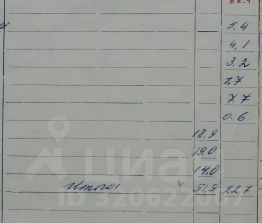 5.4
4.1
3.2
2.7
7.7
0.6
18.9
19.0
14.0
Итого 51.9 22.7